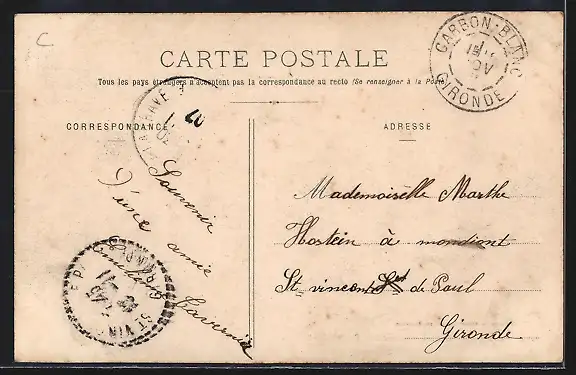 C
CARTE POSTALE
Tous les pays étrangers n'acceptent pas la correspondance au recto (Se renseigner à la Poste)
CARBON-BLANC
GIRONDE
CORRESPONDANCE
ADRESSE
Souvenir
d'une amie
Mademoiselle Marthe
Hostein à mondiont
St vincent de Paul
Gironde
ST VIN